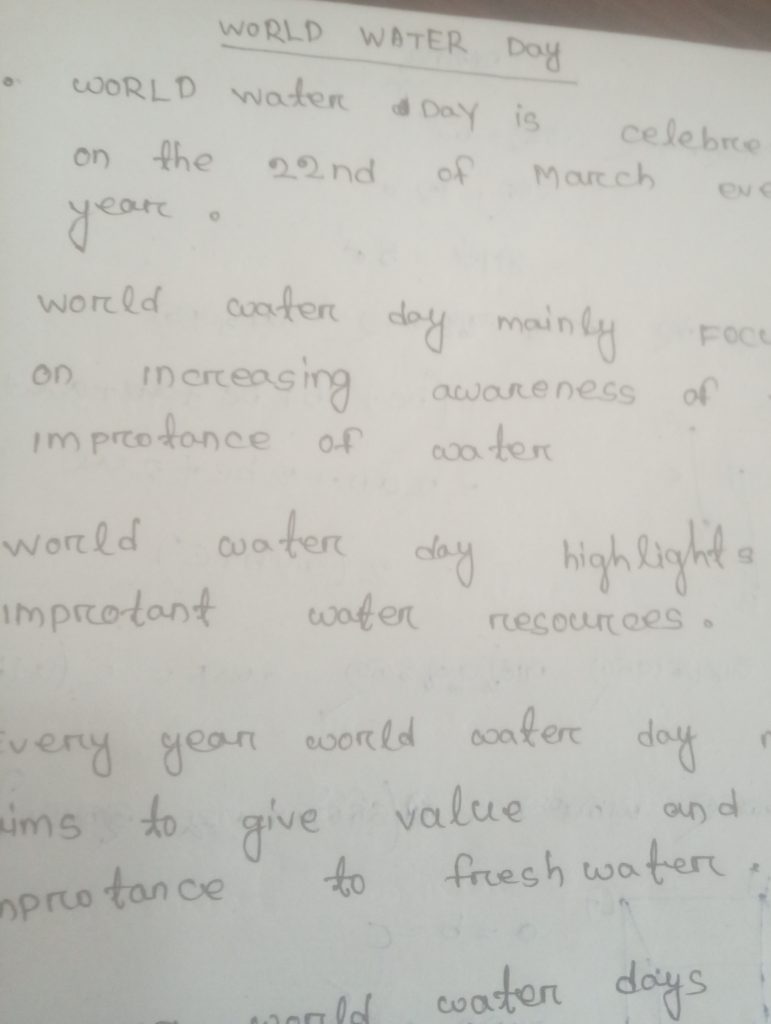 WORLD WATER Day
• WORLD water DAY is celebre
on the 22nd of March eve
year.
world water day mainly Focu
on increasing awareness of
improtance of water
world water day highlights
improtant water resources.
Every year world water day
ims to give value and
mprotance to fresh water.
world water days